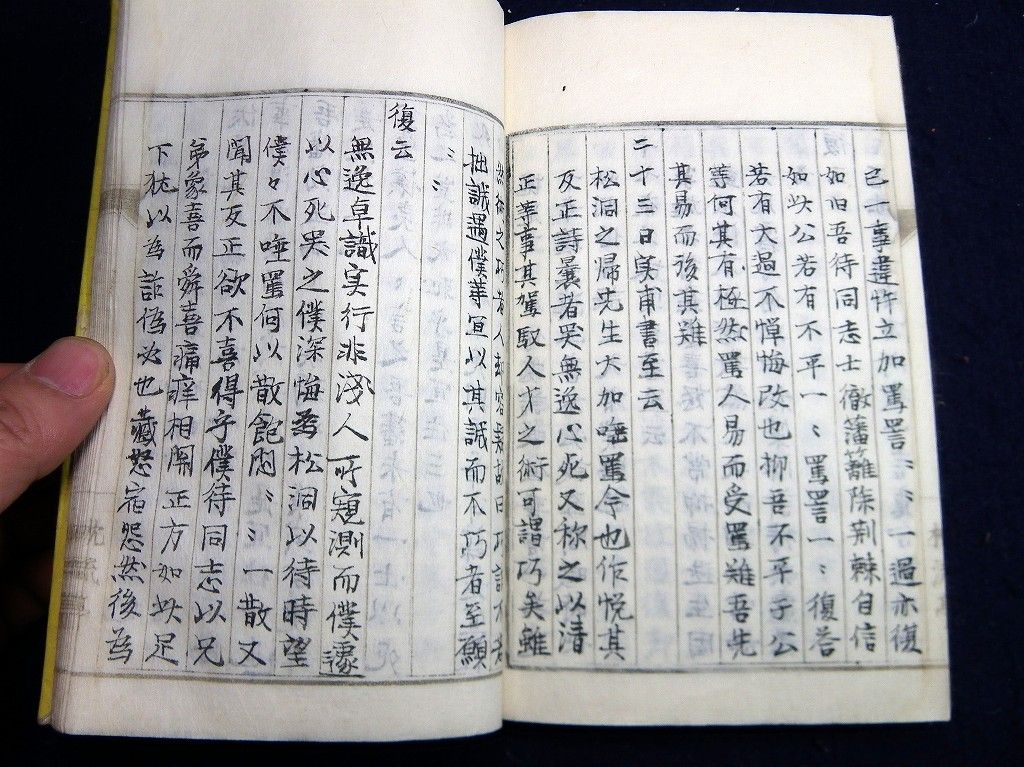 已一事違忤立加罵詈〻〻一過亦復
如旧吾待同志士徹藩籬除荆棘自信
如此公若有不平一〻罵詈一〻復答
若有大過不憚悔改也抑吾不平子公
等何其有極然罵人易而受罵難吾先
其易而後其難
二十三日実甫書至云
松洞之帰先生大加唾罵今也作悦其
反正詩曩者哭無逸心死又称之以清
正等事其駕馭人才之術可謂巧矣雖
然術之巧者人
拙誠遇僕等宜以其誠而不巧者至願
〻〻
復云
無逸卓識実行非浅人所窺測而僕遽
以心死哭之僕深悔為松洞以待時望
僕々不唾罵何以散飽悶〻〻一散又
聞其反正欲不喜得乎僕待同志以兄
弟象喜而舜喜痛痒相関正方如此足
下犹以為詐偽必也蔵怒宿怨然後為